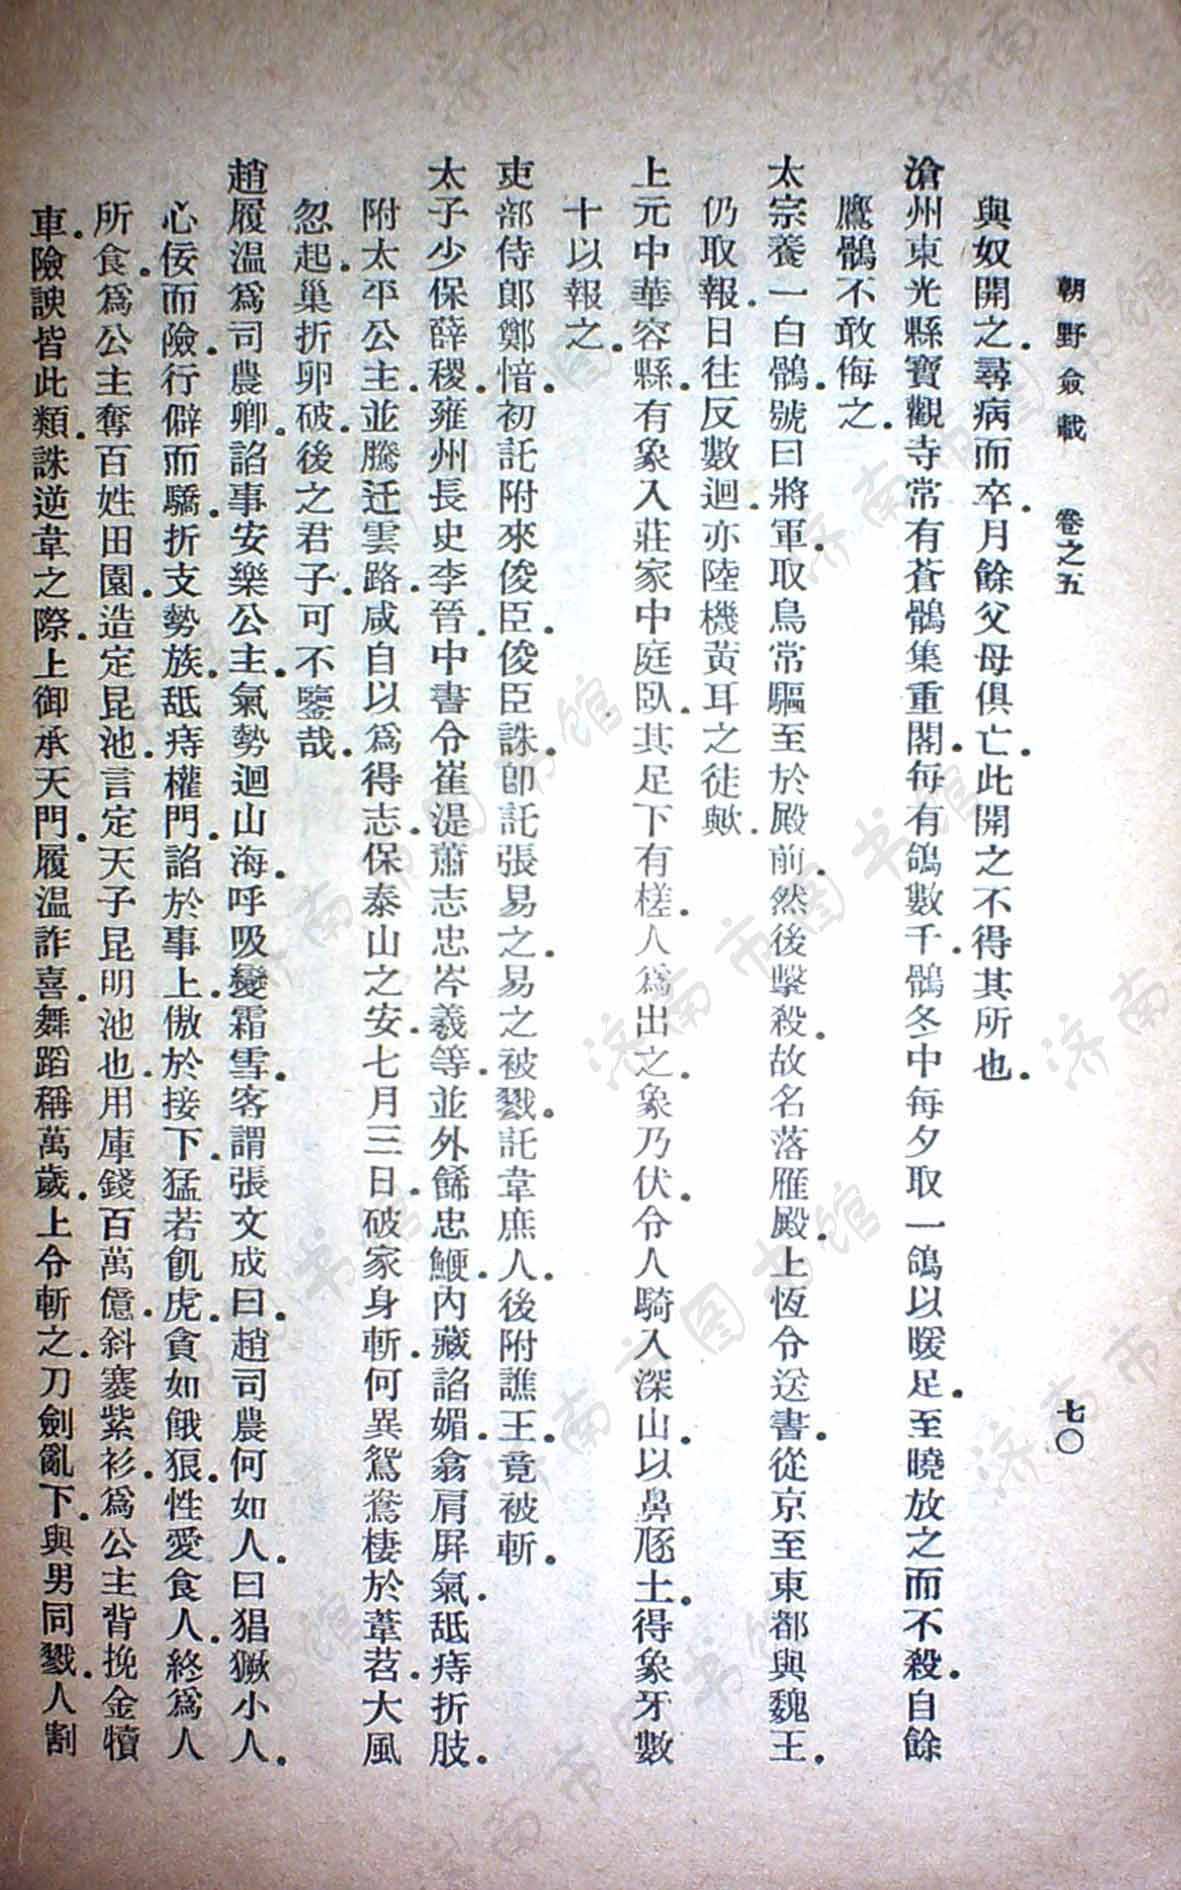 朝野僉載　卷之五　七〇
與奴開之.尋病而卒.月餘父母俱亡.此開之不得其所也.
滄州東光縣寶觀寺常有蒼鶻集重閣.每有鴿數千.鶻冬中每夕取一鴿以暖足.至曉放之而不殺.自餘
鷹鶻不敢侮之.
太宗養一白鶻.號曰將軍.取鳥常驅至於殿前.然後擊殺.故名落雁殿.上恆令送書.從京至東都與魏王.
仍取報.日往反數迴.亦陸機黃耳之徒歟.
上元中華容縣.有象入莊家中庭臥.其足下有槎.人爲出之.象乃伏.令人騎入深山.以鼻豗土.得象牙數
十以報之.
吏部侍郎鄭愔.初託附來俊臣.俊臣誅.即託張易之.易之被戮.託韋庶人.後附譙王.竟被斬.
太子少保薛稷.雍州長史李晉.中書令崔湜.蕭志忠岑羲等.並外餙忠鯁.內藏諂媚.翕肩屏氣.舐痔折肢.
附太平公主.並騰迁雲路.咸自以爲得志.保泰山之安.七月三日.破家身斬.何異鴛鴦棲於葦苕.大風
忽起.巢折卵破.後之君子.可不鑒哉.
趙履溫爲司農卿.諂事安樂公主.氣勢迴山海.呼吸變霜雪.客謂張文成曰.趙司農何如人.曰猖獗小人.
心佞而險.行僻而驕.折支勢族.舐痔權門.諂於事上.傲於接下.猛若飢虎.貪如餓狼.性愛食人.終爲人
所食.爲公主奪百姓田園.造定昆池.言定天子昆明池也.用庫錢百萬億.斜褰紫衫.爲公主背挽金犢
車.險諛皆此類.誅逆韋之際.上御承天門.履溫詐喜.舞蹈稱萬歲.上令斬之.刀劍亂下.與男同戮.人割